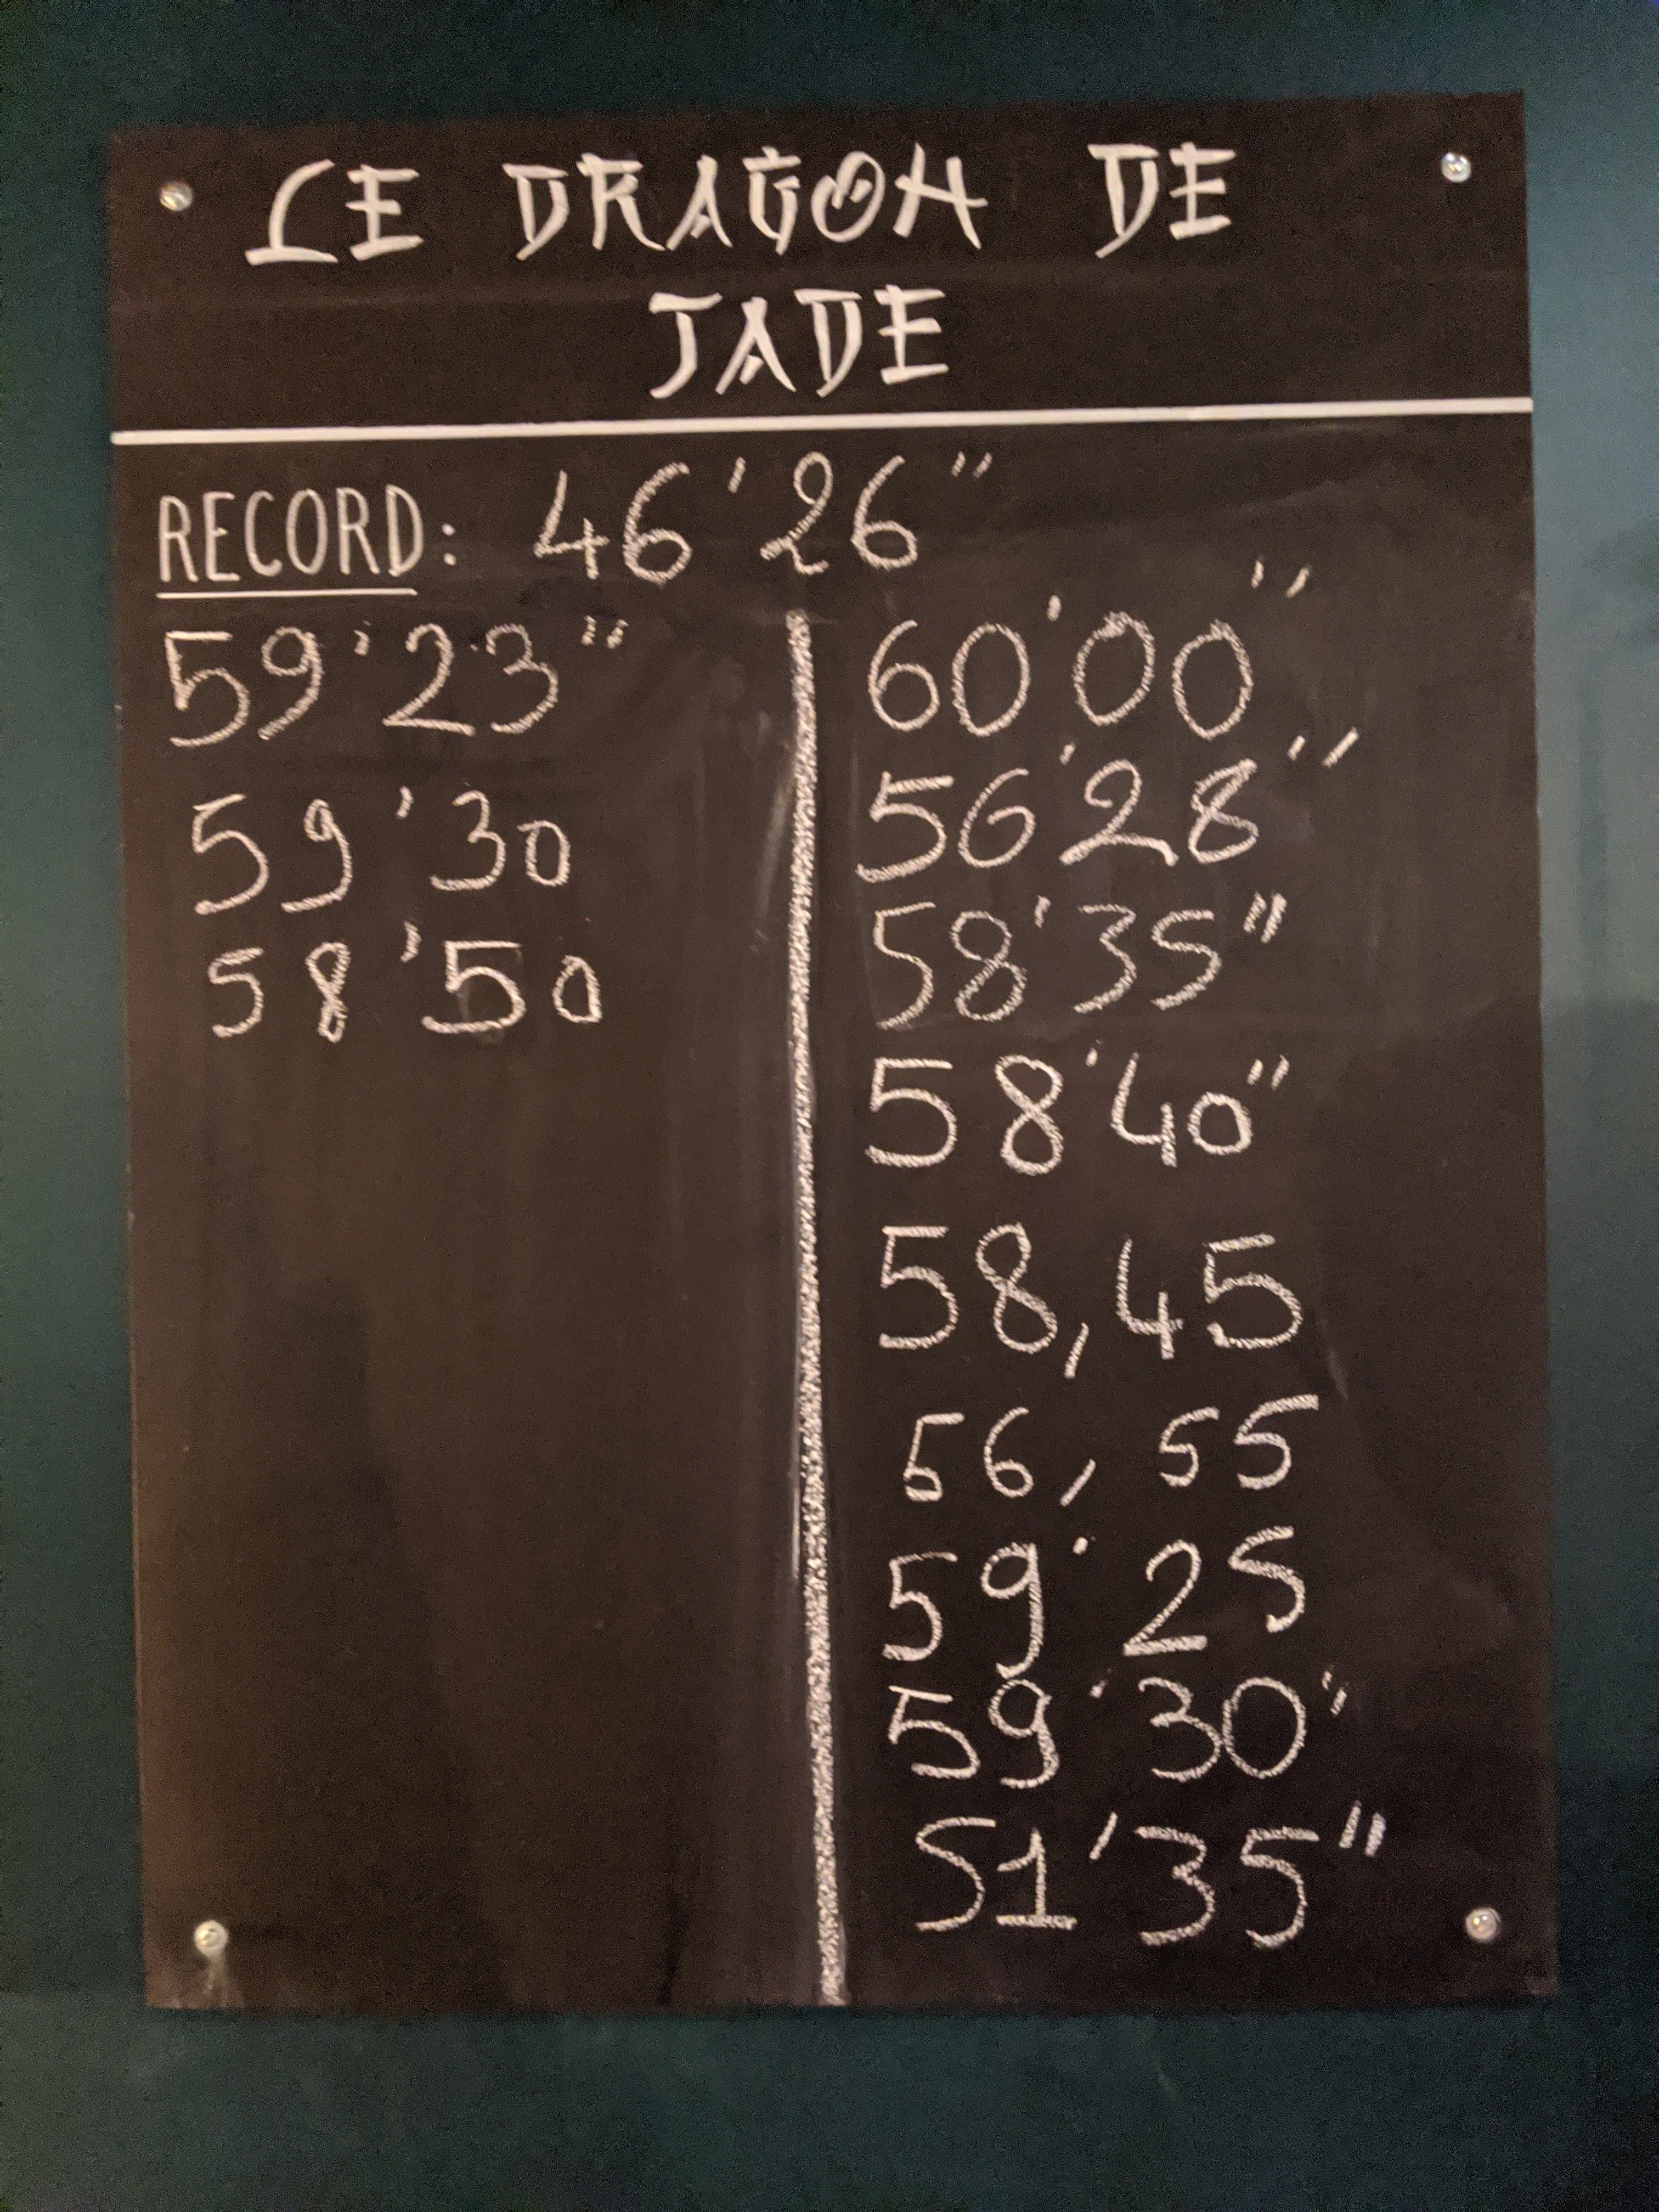 LE DRAGON DE
JADE
RECORD: 46'26"
59'23"
59'30
58'50
60'00"
56'28"
58'35"
58'40"
58,45
56,55
59'25
59'30"
51'35"